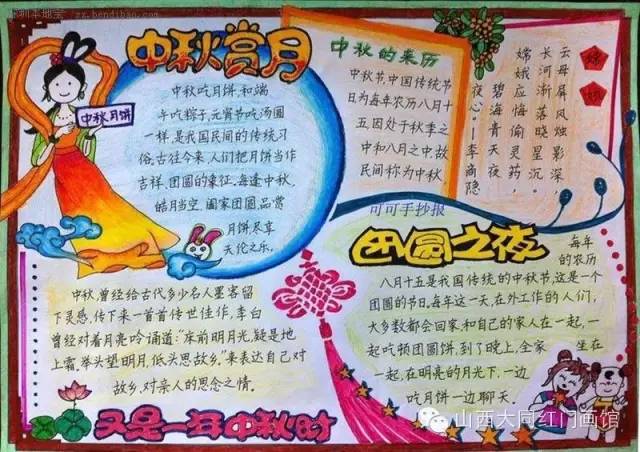 中秋赏月
中秋月饼
中秋吃月饼,和端
午吃粽子,元宵节吃汤圆
一样,是我国民间的传统习
俗.古往今来,人们把月饼当作
吉祥、团圆的象征.每逢中秋,
皓月当空,阖家团圆,品赏
月饼尽享
天伦之乐.
中秋的来历
中秋节,中国传统节
日为每年农历八月十
五,因处于秋季之
中和八月之中,故
民间称为中秋
嫦娥
云母屏风烛影深
长河渐落晓星沉
嫦娥应悔偷灵药,
碧海青天夜
夜心。—李商隐
可可手抄报
团圆之夜
每年
的农历
八月十五是我国传统的中秋节,这是一个
团圆的节日,每年这一天,在外工作的人们,
大多数都会回家.和自己的家人在一起,一
起吃顿团圆饼,到了晚上,全家坐在
一起,在明亮的月光下,一边
吃月饼一边聊天.
中秋,曾经给古代多少名人墨客留
下灵感,传下来一首首传世佳作,李白
曾经对着月亮吟诵道:"床前明月光,疑是地
上霜.举头望明月,低头思故乡."来表达自己对
故乡,对亲人的思念之情.
又是一年中秋时
山西大同红门画馆